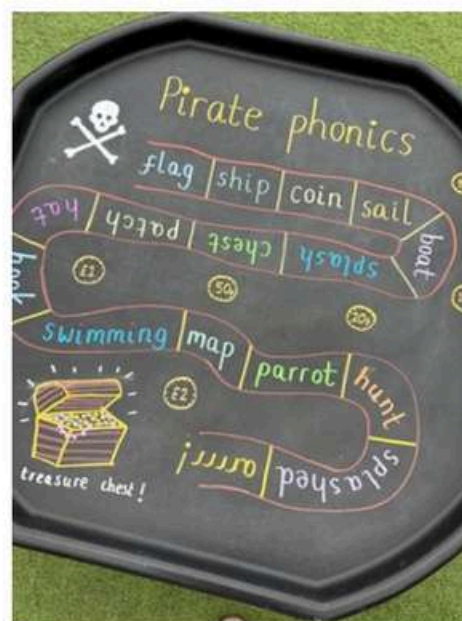 Pirate phonics
flag ship coin sail
boat
splash chest patch hat
hook
£1
50p
20p
swimming map parrot hunt
£2
splashed arrrr!
treasure chest!